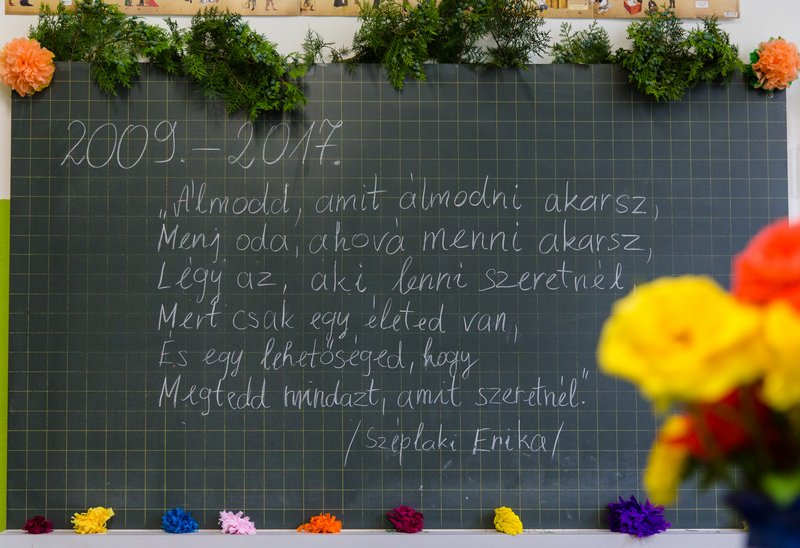 2009.-2017.
„Álmodd, amit álmodni akarsz,
Menj oda, ahová menni akarsz,
Légy az, aki lenni szeretnél,
Mert csak egy életed van,
És egy lehetőséged, hogy
Megtedd mindazt, amit szeretnél."
/Széplaki Erika/